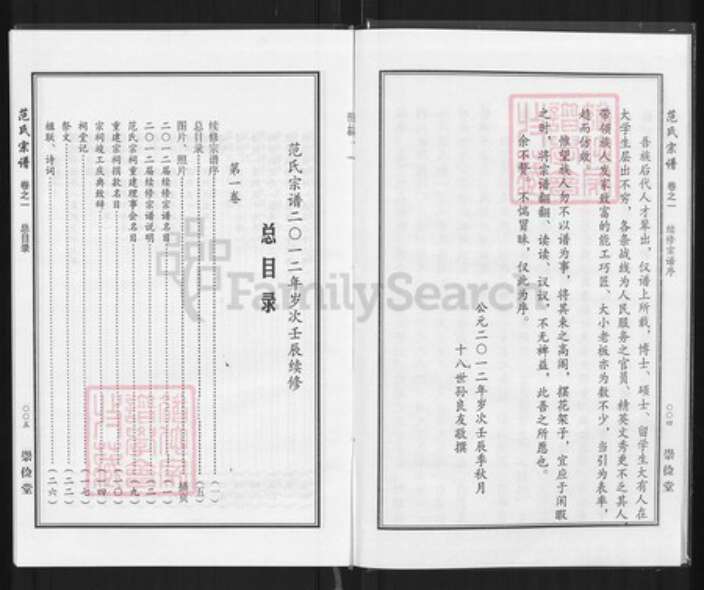 范氏宗谱 卷之一 续修宗谱序 〇〇四 崇俭堂
吾族后代人才辈出，仅谱上所载，博士、硕士、留学生大有人在
大学生层出不穷，各条战线为人民服务之官员、精英文秀更不乏其人，
带领族人发家致富的能工巧匠、大小老板亦为数不少，当引为表率，
趋而仿效。
惟望族人勿不以谱为事，将其束之高阁，摆花架子，宜应于闲暇
之时，将宗谱翻翻、读读、议议，不无裨益，此吾之所愿也。
余不赘，不惴冒昧，仅此为序。
公元二〇一二年岁次壬辰季秋月
十八世孙良友敬撰
范氏宗谱二〇一二年岁次壬辰续修
总目录
第一卷
续修宗谱序（一）
总目录（五）
图片、照片 插页
二〇一二届续修宗谱名目（一）
二〇一二届续修宗谱说明（二）
范氏宗祠重建理事会名目（九）
重建宗祠捐款名目（一〇）
宗祠竣工庆典致辞（一四）
祠堂记（一七）
祭文（二二）
楹联、诗词（二六）
范氏宗谱 卷之一 总目录 〇〇五 崇俭堂
FamilySearch